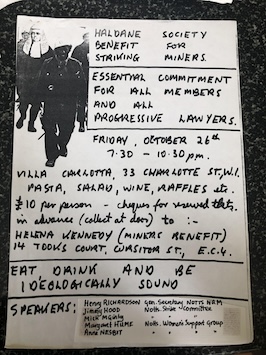 HALDANE SOCIETY
BENEFIT FOR
STRIKING MINERS.
ESSENTIAL COMMITMENT
FOR ALL MEMBERS
AND ALL
PROGRESSIVE LAWYERS.
FRIDAY, OCTOBER 26th
7.30 - 10.30 pm.
VILLA CARLOTTA, 33 CHARLOTTE ST, W.1.
PASTA, SALAD, WINE, RAFFLES etc.
£10 per person - cheques for reserved tkts.
in advance (collect at door) to :-
HELENA KENNEDY (MINERS BENEFIT)
14 TOOKS COURT, CURSITOR ST., E.C.4.
EAT, DRINK AND BE
IDEOLOGICALLY SOUND
SPEAKERS:
Henry RICHARDSON Gen. Secretary NOTTS NUM
Jimmy HOOD Notts. Strike Committee
Mick McGinty
Margaret HUMES Notts. Women's Support Group
Anne NESBIT " " "